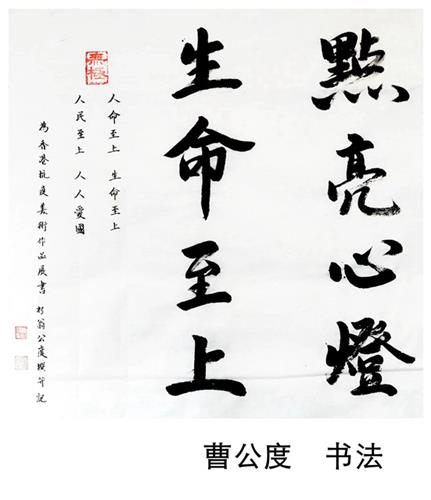 點亮心燈
生命至上
人命至上 生命至上
人民至上 人人愛國
為香港抗疫美術作品展書 翁公度撰并記
曹公度 书法